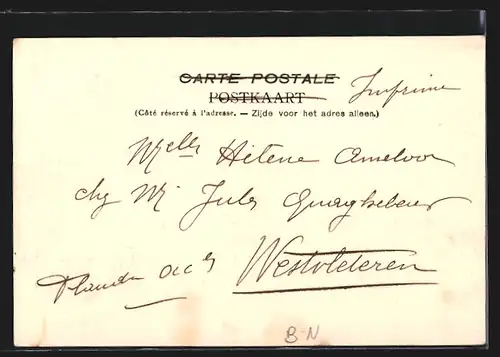 CARTE POSTALE
POSTKAART
Imprimé
(Côté réservé à l'adresse. — Zijde voor het adres alleen.)
Melle Hélène Ameloor
chez Mr Jules Quaghebeur
Westvleteren
Flandre Occle
B-N